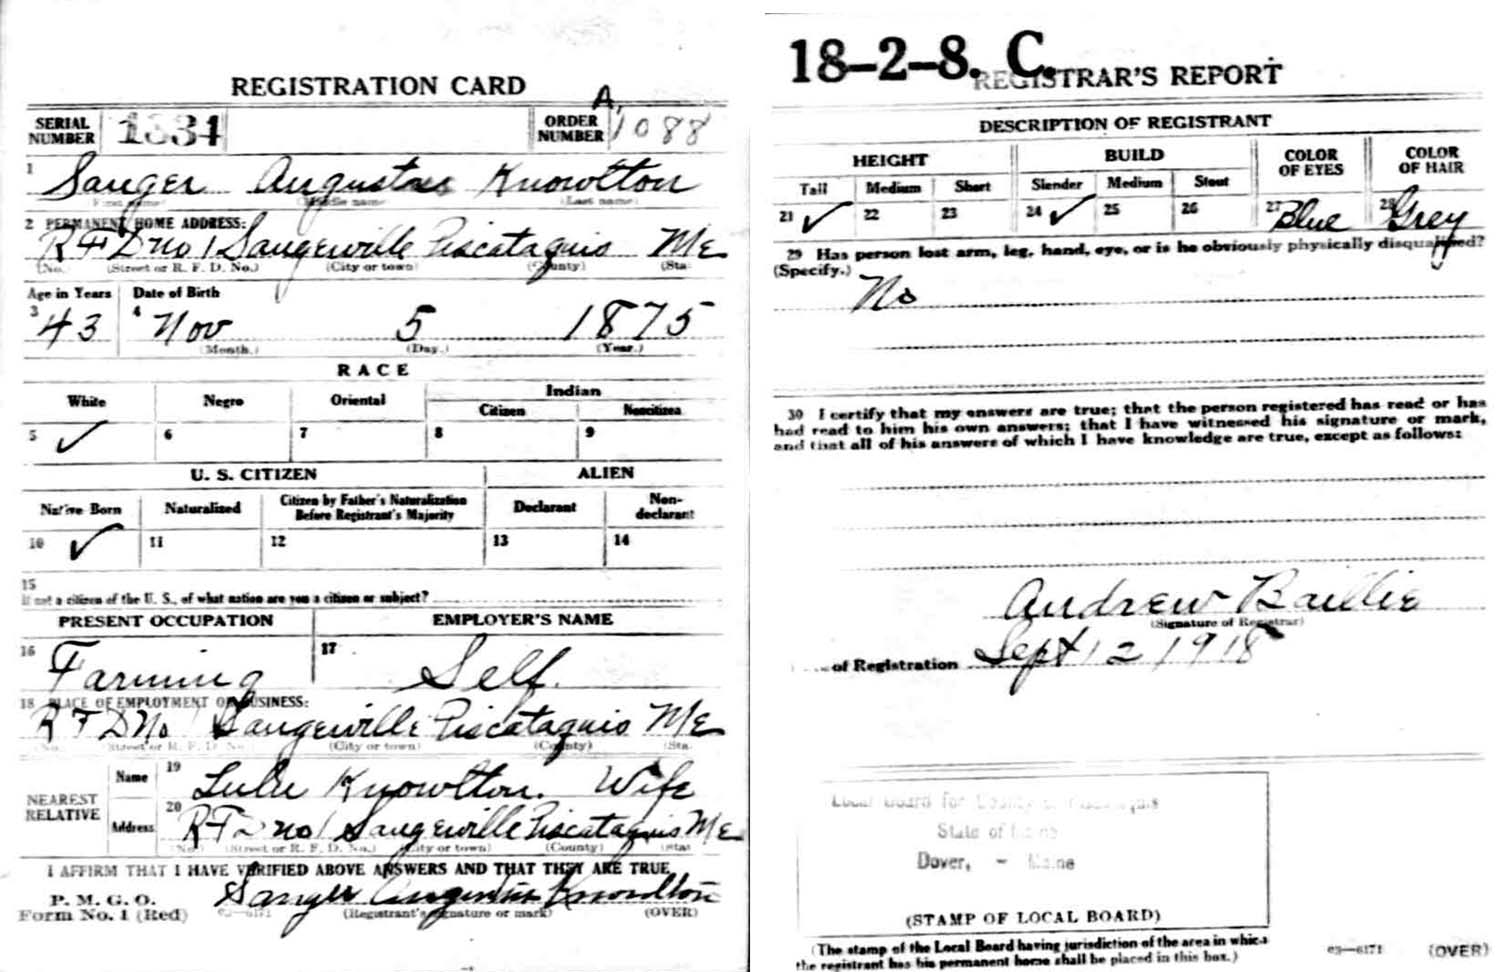 REGISTRATION CARD
SERIAL NUMBER 1334 ORDER NUMBER A 1088
1 Sanger Augustus Knowlton
(First name) (Middle name) (Last name)
2 PERMANENT HOME ADDRESS:
R F D No 1 Sangerville Piscataquis Me
(No.) (Street or R. F. D. No.) (City or town) (County) (Sta
Age in Years Date of Birth
3 43 4 Nov 5 1875
(Month.) (Day.) (Year.)
RACE
White Negro Oriental Indian
Citizen Noncitizen
5 ✓ 6 7 8 9
U. S. CITIZEN ALIEN
Native Born Naturalized Citizen by Father's Naturalization Before Registrant's Majority Declarant Non-declarant
10 ✓ 11 12 13 14
15
If not a citizen of the U. S., of what nation are you a citizen or subject?
PRESENT OCCUPATION EMPLOYER'S NAME
16 Farming 17 Self.
18 PLACE OF EMPLOYMENT OR BUSINESS:
R F D No 1 Sangerville Piscataquis Me
(No.) (Street or R. F. D. No.) (City or town) (County) (Sta
NEAREST RELATIVE
Name 19 Lulu Knowlton. Wife
Address 20 R F D no 1 Sangerville Piscataquis Me
(No.) (Street or R. F. D. No.) (City or town) (County) (Stat
I AFFIRM THAT I HAVE VERIFIED ABOVE ANSWERS AND THAT THEY ARE TRUE
P. M. G. O.
Form No. 1 (Red) Sanger Augustus Knowlton
(Registrant's signature or mark) (OVER)
18-2-8. C.
REGISTRAR'S REPORT
DESCRIPTION OF REGISTRANT
HEIGHT BUILD COLOR OF EYES COLOR OF HAIR
Tall Medium Short Slender Medium Stout
21 ✓ 22 23 24 ✓ 25 26 27 Blue 28 Grey
29 Has person lost arm, leg, hand, eye, or is he obviously physically disqualified?
(Specify.) No
30 I certify that my answers are true; that the person registered has read or has
had read to him his own answers; that I have witnessed his signature or mark,
and that all of his answers of which I have knowledge are true, except as follows:
Andrew Baillie
(Signature of Registrar)
of Registration Sept 12 1918
Local Board for County of Piscataquis
State of Maine
Dover, - Maine
(STAMP OF LOCAL BOARD)
(The stamp of the Local Board having jurisdiction of the area in which
the registrant has his permanent home shall be placed in this box.)
03—6171 (OVER)